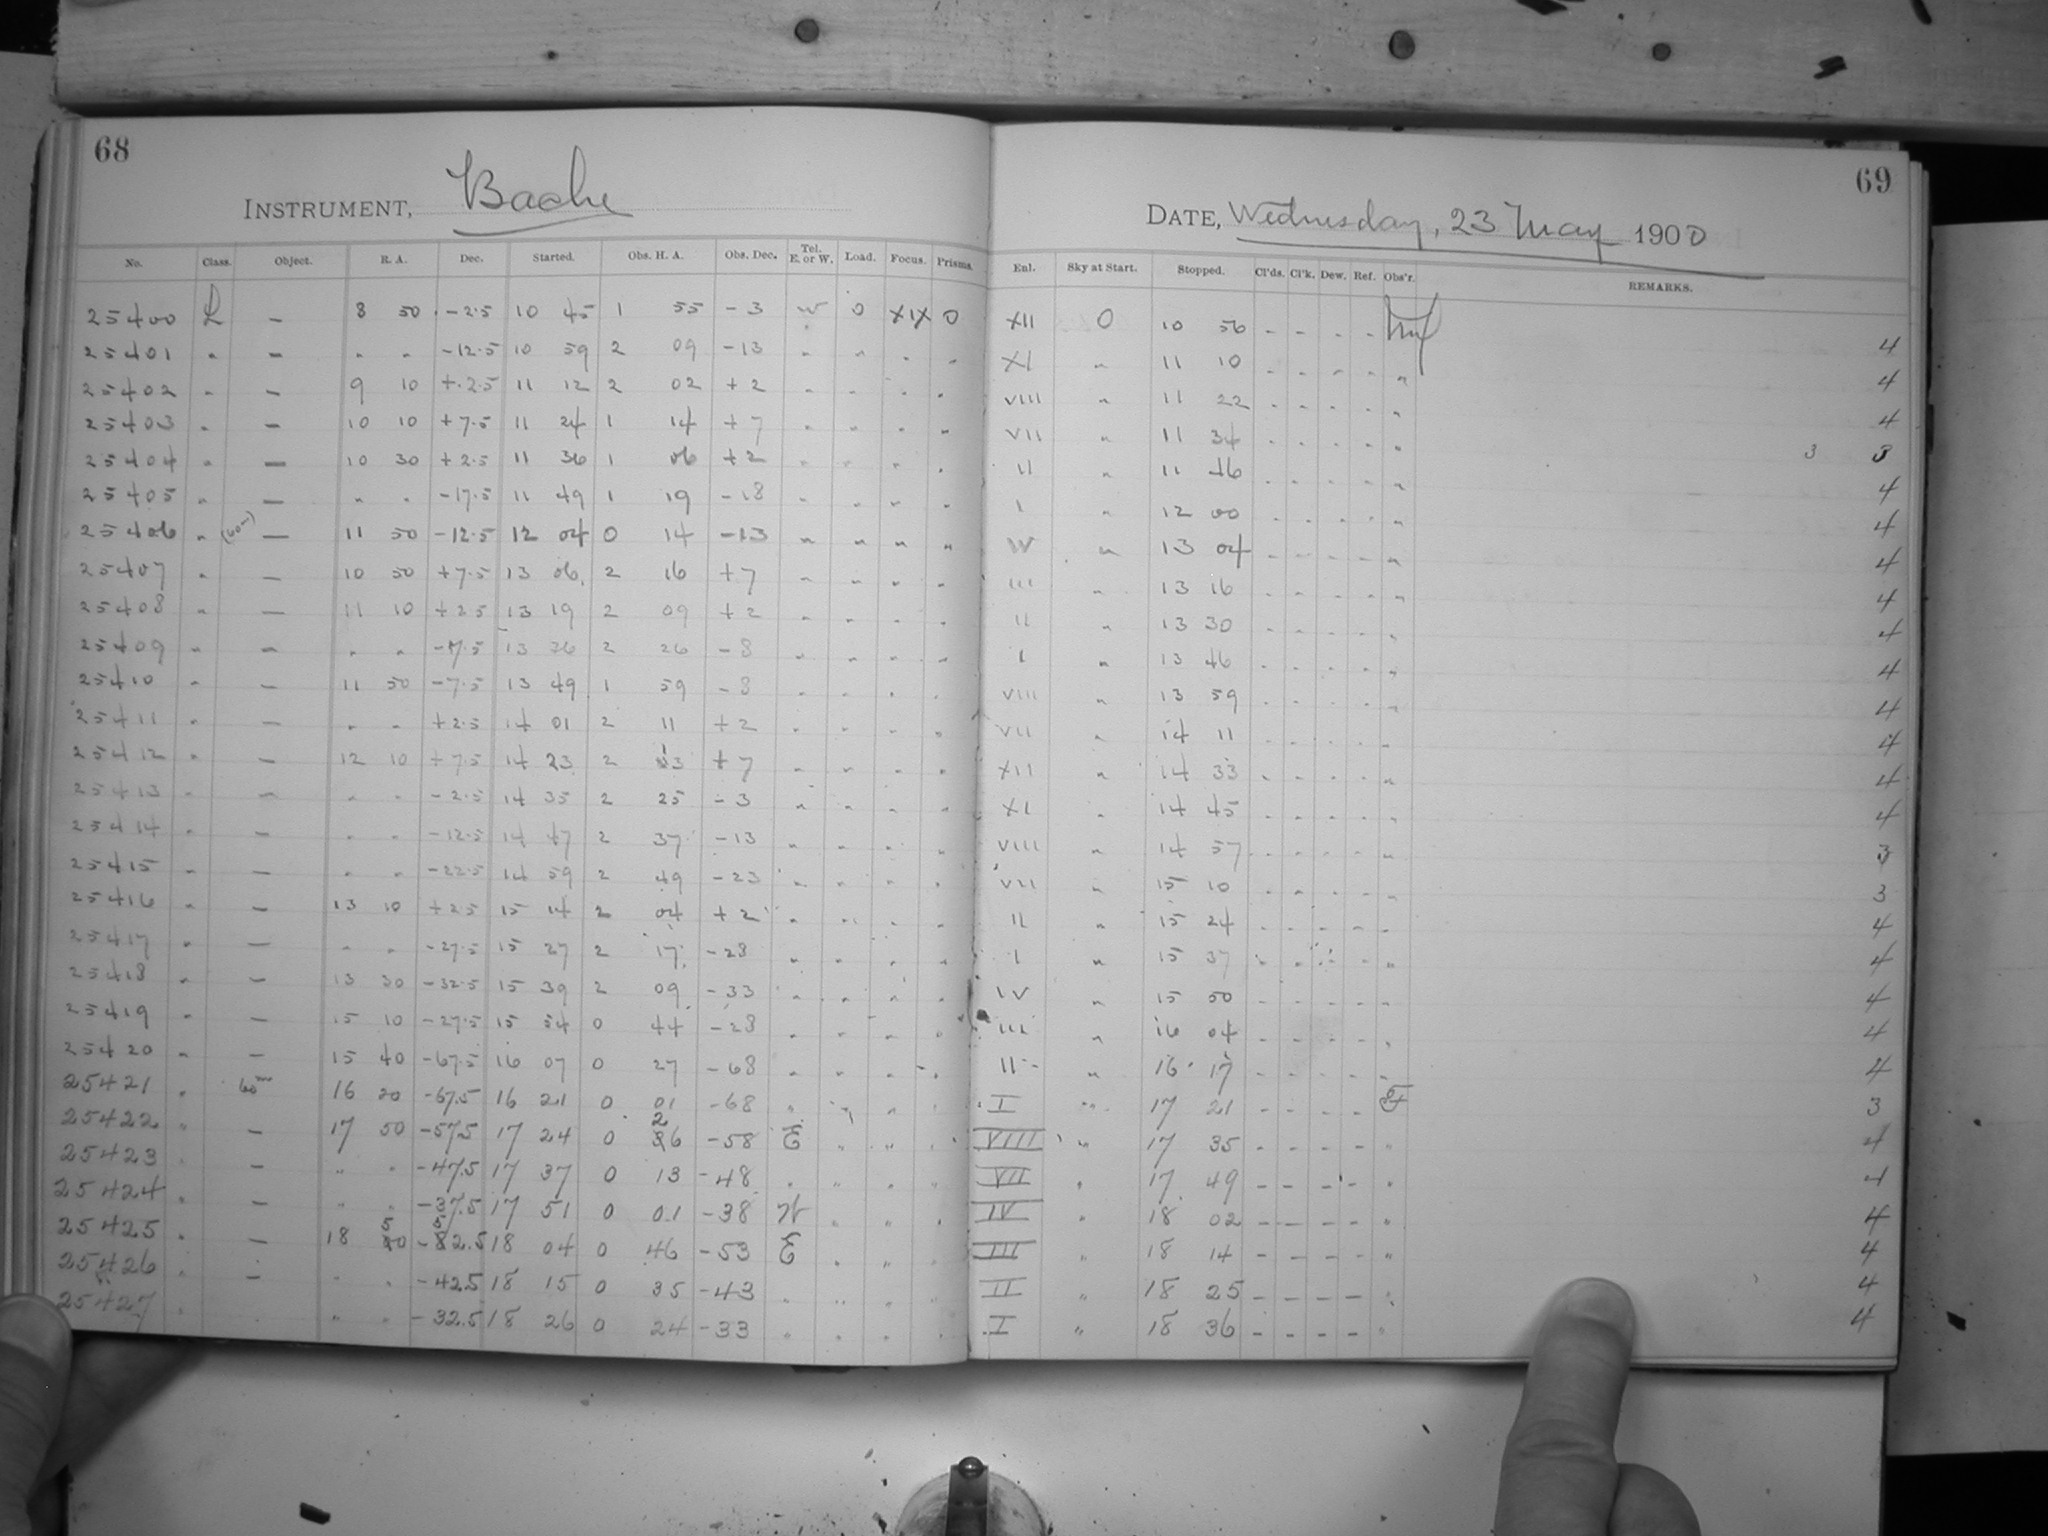 68
69
INSTRUMENT, Bache
DATE, Wednesday, 23 May 1900
No. Class. Object. R. A. Dec. Started. Obs. H. A. Obs. Dec. Tel. E. or W. Load. Focus. Prisms. Enl. Sky at Start. Stopped. Cl'ds. Cl'k. Dew. Ref. Obs'r. REMARKS.
25400 L — 8 50 -2.5 10 45 1 55 -3 W 0 XIX 0 XII 0 10 56 - - - - 4
25401 " — " " -12.5 10 59 2 09 -13 " " " " XI " 11 10 - - - - " 4
25402 " — 9 10 +2.5 11 12 2 02 +2 " " " " VIII " 11 22 - - - - " 4
25403 " — 10 10 +7.5 11 24 1 14 +7 " " " " VII " 11 34 - - - - " 3 3
25404 " — 10 30 +2.5 11 36 1 06 +2 " " " " II " 11 46 - - - - " 4
25405 " — " " -17.5 11 49 1 19 -18 " " " " I " 12 00 - - - - " 4
25406 " (60m) — 11 50 -12.5 12 04 0 14 -13 " " " " IV " 13 04 - - - - " 4
25407 " — 10 50 +7.5 13 06 2 16 +7 " " " " III " 13 16 - - - - " 4
25408 " — 11 10 +2.5 13 19 2 09 +2 " " " " II " 13 30 - - - - " 4
25409 " — " " -7.5 13 36 2 26 -8 " " " " I " 13 46 - - - - " 4
25410 " — 11 50 -7.5 13 49 1 59 -8 " " " " VIII " 13 59 - - - - " 4
25411 " — " " +2.5 14 01 2 11 +2 " " " " VII " 14 11 - - - - " 4
25412 " — 12 10 +7.5 14 23 2 13 +7 " " " " XII " 14 33 - - - - " 4
25413 " — " " -2.5 14 35 2 25 -3 " " " " XI " 14 45 - - - - " 4
25414 " — " " -12.5 14 47 2 37 -13 " " " " VIII " 14 57 - - - - " 3
25415 " — " " -22.5 14 59 2 49 -23 " " " " VII " 15 10 - - - - " 3
25416 " — 13 10 +2.5 15 14 2 04 +2 " " " " II " 15 24 - - - - " 4
25417 " — " " -27.5 15 27 2 17 -28 " " " " I " 15 37 - - - - " 4
25418 " — 13 30 -32.5 15 39 2 09 -33 " " " " IV " 15 50 - - - - " 4
25419 " — 15 10 -27.5 15 54 0 44 -28 " " " " III " 16 04 - - - - " 4
25420 " — 15 40 -67.5 16 07 0 27 -68 " " " " II " 16 17 - - - - " 4
25421 " 60m 16 20 -67.5 16 21 0 01 -68 " " " " I " 17 21 - - - - 3
25422 " — 17 50 -57.5 17 24 0 26 -58 E " " " VIII " 17 35 - - - - " 4
25423 " — " " -47.5 17 37 0 13 -48 " " " " VII " 17 49 - - - - " 4
25424 " — " " -37.5 17 51 0 01 -38 W " " " IV " 18 02 - - - - " 4
25425 " — 18 50 -52.5 18 04 0 46 -53 E " " " III " 18 14 - - - - " 4
25426 " — " " -42.5 18 15 0 35 -43 " " " " II " 18 25 - - - - " 4
25427 " " " -32.5 18 26 0 24 -33 " " " " I " 18 36 - - - - " 4